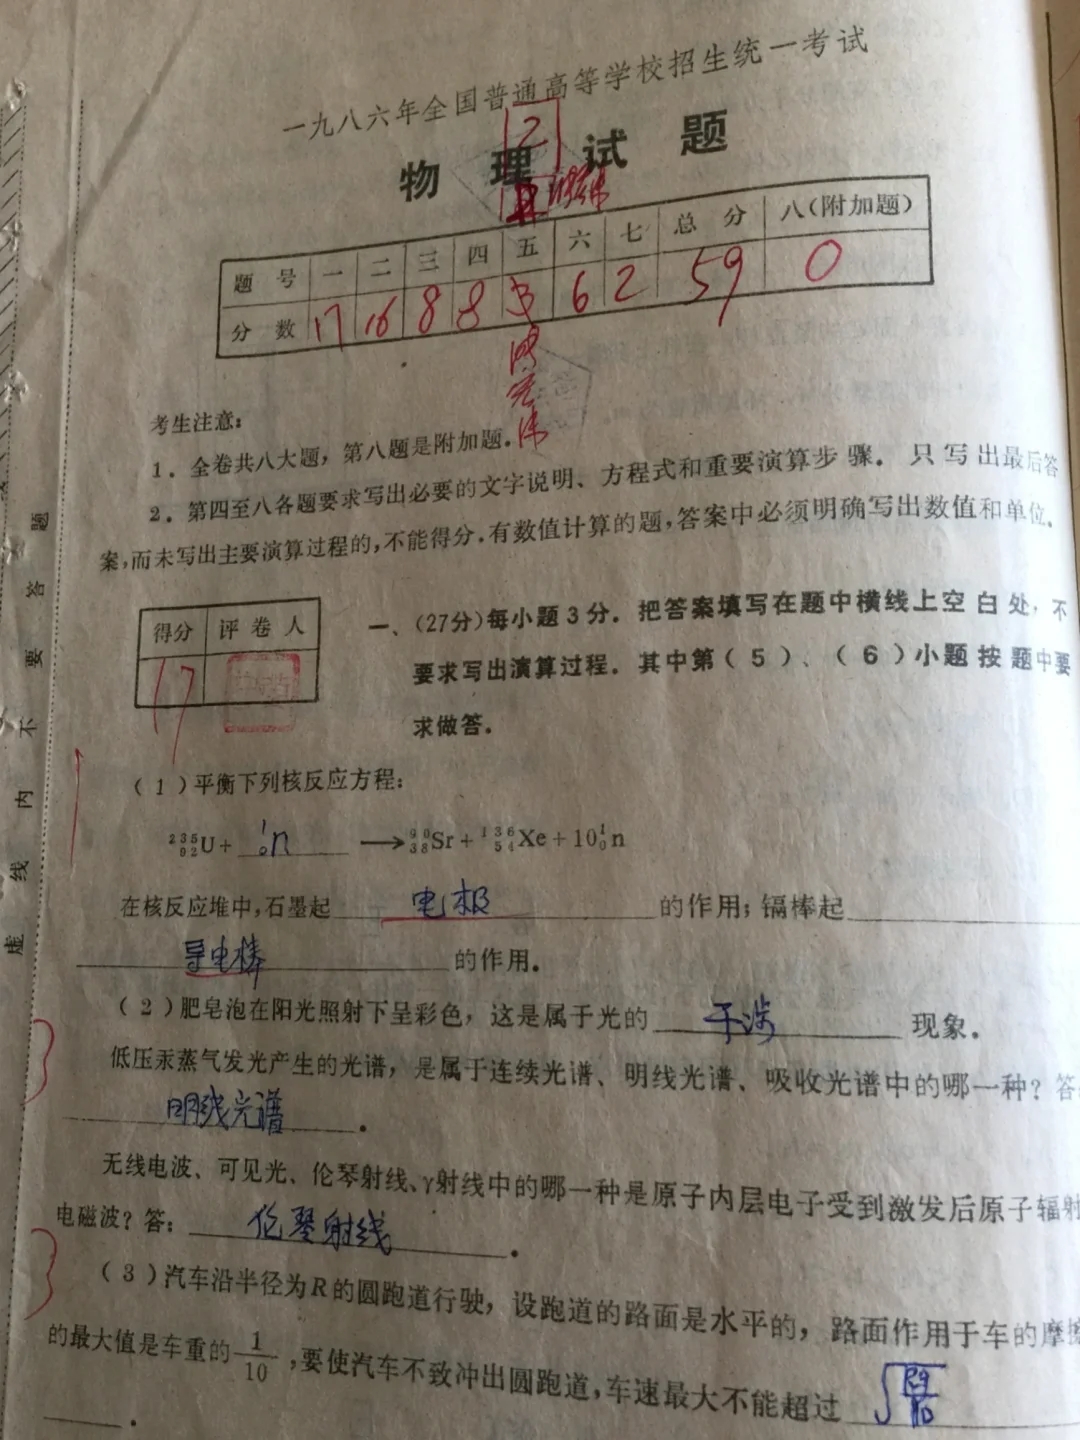 一九八六年全国普通高等学校招生统一考试
物理试题
2
题号 一 二 三 四 五 六 七 总分 八(附加题)
分数 17 16 8 8 6 2 59 0
考生注意:
1. 全卷共八大题,第八题是附加题.
2. 第四至八各题要求写出必要的文字说明、方程式和重要演算步骤. 只写出最后答
案,而未写出主要演算过程的,不能得分.有数值计算的题,答案中必须明确写出数值和单位.
得分 评卷人
17
一、(27分)每小题3分. 把答案填写在题中横线上空白处,不
要求写出演算过程. 其中第(5)、(6)小题按题中要
求做答.
(1)平衡下列核反应方程:
²³⁵₉₂U+ ¹₀n ⟶ ⁹⁰₃₈Sr+¹³⁶₅₄Xe+10¹₀n
1
在核反应堆中,石墨起 电极 的作用;镉棒起
导电棒 的作用.
(2)肥皂泡在阳光照射下呈彩色,这是属于光的 干涉 现象.
3
低压汞蒸气发光产生的光谱,是属于连续光谱、明线光谱、吸收光谱中的哪一种?答
明线光谱 .
无线电波、可见光、伦琴射线、γ射线中的哪一种是原子内层电子受到激发后原子辐射
电磁波?答: 伦琴射线 .
3
(3)汽车沿半径为R的圆跑道行驶,设跑道的路面是水平的,路面作用于车的摩擦
的最大值是车重的1/10,要使汽车不致冲出圆跑道,车速最大不能超过 √(Rg/10)
.
虚线内不要答题